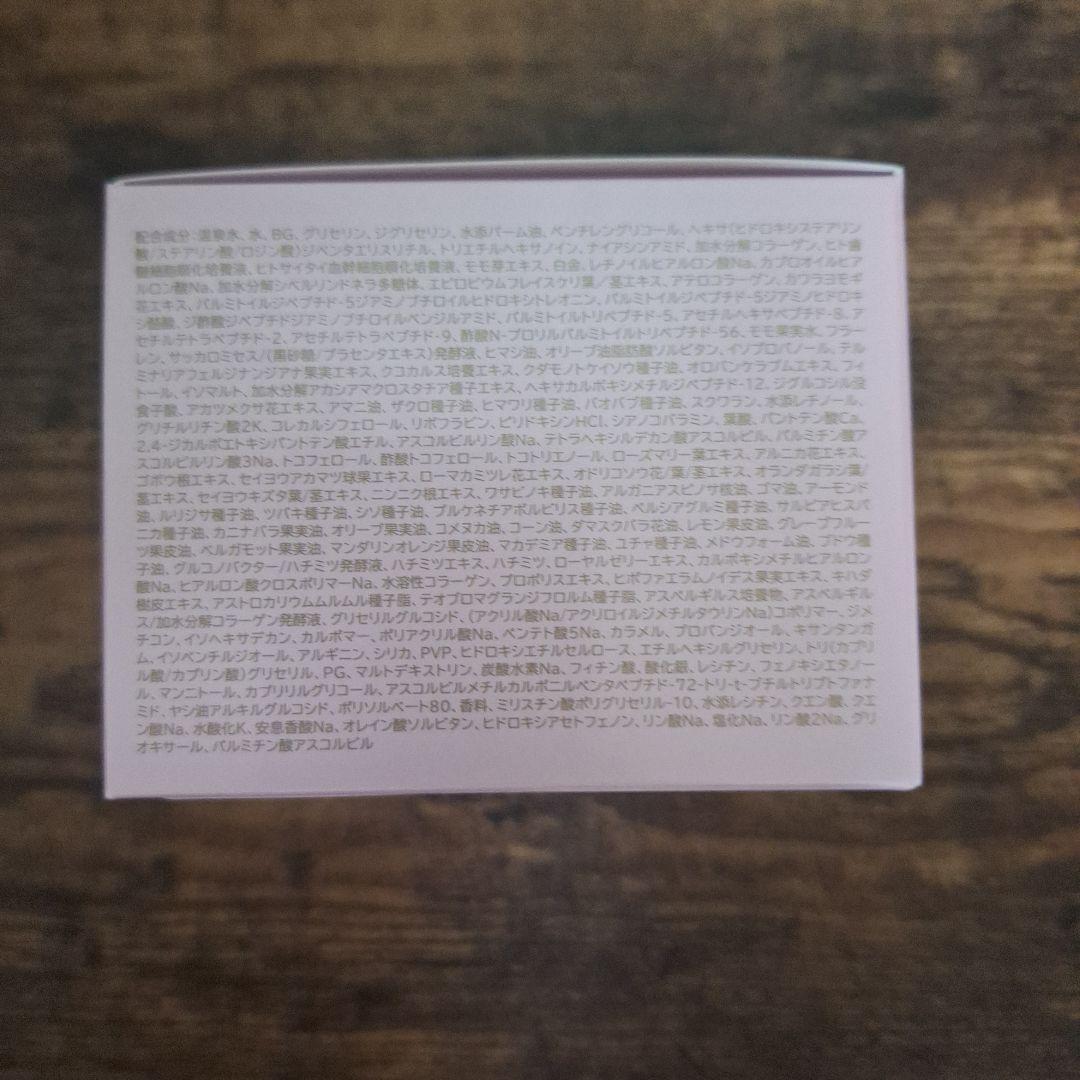 配合成分:温泉水、水、BG、グリセリン、ジグリセリン、水添パーム油、ペンチレングリコール、ヘキサ(ヒドロキシステアリン
酸/ステアリン酸/ロジン酸)ジペンタエリスリチル、トリエチルヘキサノイン、ナイアシンアミド、加水分解コラーゲン、ヒト歯
髄細胞順化培養液、ヒトサイタイ血幹細胞順化培養液、モモ芽エキス、白金、レチノイルヒアルロン酸Na、カプロオイルヒア
ルロン酸Na、加水分解シベルリンドネラ多糖体、エピロビウムフレイスケリ葉/茎エキス、アテロコラーゲン、カワラヨモギ
花エキス、パルミトイルジペプチド-5ジアミノブチロイルヒドロキシトレオニン、パルミトイルジペプチド-5ジアミノヒドロキ
シ酪酸、ジ酢酸ジペプチドジアミノブチロイルベンジルアミド、パルミトイルトリペプチド-5、アセチルヘキサペプチド-8、ア
セチルテトラペプチド-2、アセチルテトラペプチド-9、酢酸N-プロリルパルミトイルトリペプチド-56、モモ果実水、フラー
レン、サッカロミセス/(黒砂糖/プラセンタエキス)発酵液、ヒマシ油、オリーブ油脂肪酸ソルビタン、イソプロパノール、テル
ミナリアフェルジナンジアナ果実エキス、クコカルス培養エキス、クダモノトケイソウ種子油、オロバンケラプムエキス、フィ
トール、イソマルト、加水分解アカシアマクロスタチア種子エキス、ヘキサカルボキシメチルジペプチド-12、ジグルコシル没
食子酸、アカツメクサ花エキス、アマニ油、ザクロ種子油、ヒマワリ種子油、バオバブ種子油、スクワラン、水添レチノール、
グリチルリチン酸2K、コレカルシフェロール、リボフラビン、ピリドキシンHCl、シアノコバラミン、葉酸、パントテン酸Ca、
2,4-ジカルボエトキシパントテン酸エチル、アスコルビルリン酸Na、テトラヘキシルデカン酸アスコルビル、パルミチン酸ア
スコルビルリン酸3Na、トコフェロール、酢酸トコフェロール、トコトリエノール、ローズマリー葉エキス、アルニカ花エキス、
ゴボウ根エキス、セイヨウアカマツ球果エキス、ローマカミツレ花エキス、オドリコソウ花/葉/茎エキス、オランダガラシ葉/
茎エキス、セイヨウキズタ葉/茎エキス、ニンニク根エキス、ワサビノキ種子油、アルガニアスピノサ核油、ゴマ油、アーモンド
油、ルリジサ種子油、ツバキ種子油、シソ種子油、プルケネチアボルビリス種子油、ペルシアグルミ種子油、サルビアヒスパ
ニカ種子油、カニナバラ果実油、オリーブ果実油、コメヌカ油、コーン油、ダマスクバラ花油、レモン果皮油、グレープフルー
ツ果皮油、ベルガモット果実油、マンダリンオレンジ果皮油、マカデミア種子油、ユチャ種子油、メドウフォーム油、ブドウ種
子油、グルコノバクター/ハチミツ発酵液、ハチミツエキス、ハチミツ、ローヤルゼリーエキス、カルボキシメチルヒアルロン
酸Na、ヒアルロン酸クロスポリマーNa、水溶性コラーゲン、プロポリスエキス、ヒポファエラムノイデス果実エキス、キハダ
樹皮エキス、アストロカリウムムルムル種子脂、テオブロマグランジフロルム種子脂、アスペルギルス培養物、アスペルギル
ス/加水分解コラーゲン発酵液、グリセリルグルコシド、(アクリル酸Na/アクリロイルジメチルタウリンNa)コポリマー、ジメ
チコン、イソヘキサデカン、カルボマー、ポリアクリル酸Na、ペンテト酸5Na、カラメル、プロパンジオール、キサンタンガ
ム、イソペンチルジオール、アルギニン、シリカ、PVP、ヒドロキシエチルセルロース、エチルヘキシルグリセリン、トリ(カプリ
ル酸/カプリン酸)グリセリル、PG、マルトデキストリン、炭酸水素Na、フィチン酸、酸化銀、レシチン、フェノキシエタノー
ル、マンニトール、カプリリルグリコール、アスコルビルメチルカルボニルペンタペプチド-72-トリ-t-ブチルトリプトファナ
ミド、ヤシ油アルキルグルコシド、ポリソルベート80、香料、ミリスチン酸ポリグリセリル-10、水添レシチン、クエン酸、クエ
ン酸Na、水酸化K、安息香酸Na、オレイン酸ソルビタン、ヒドロキシアセトフェノン、リン酸Na、塩化Na、リン酸2Na、グリ
オキサール、パルミチン酸アスコルビル